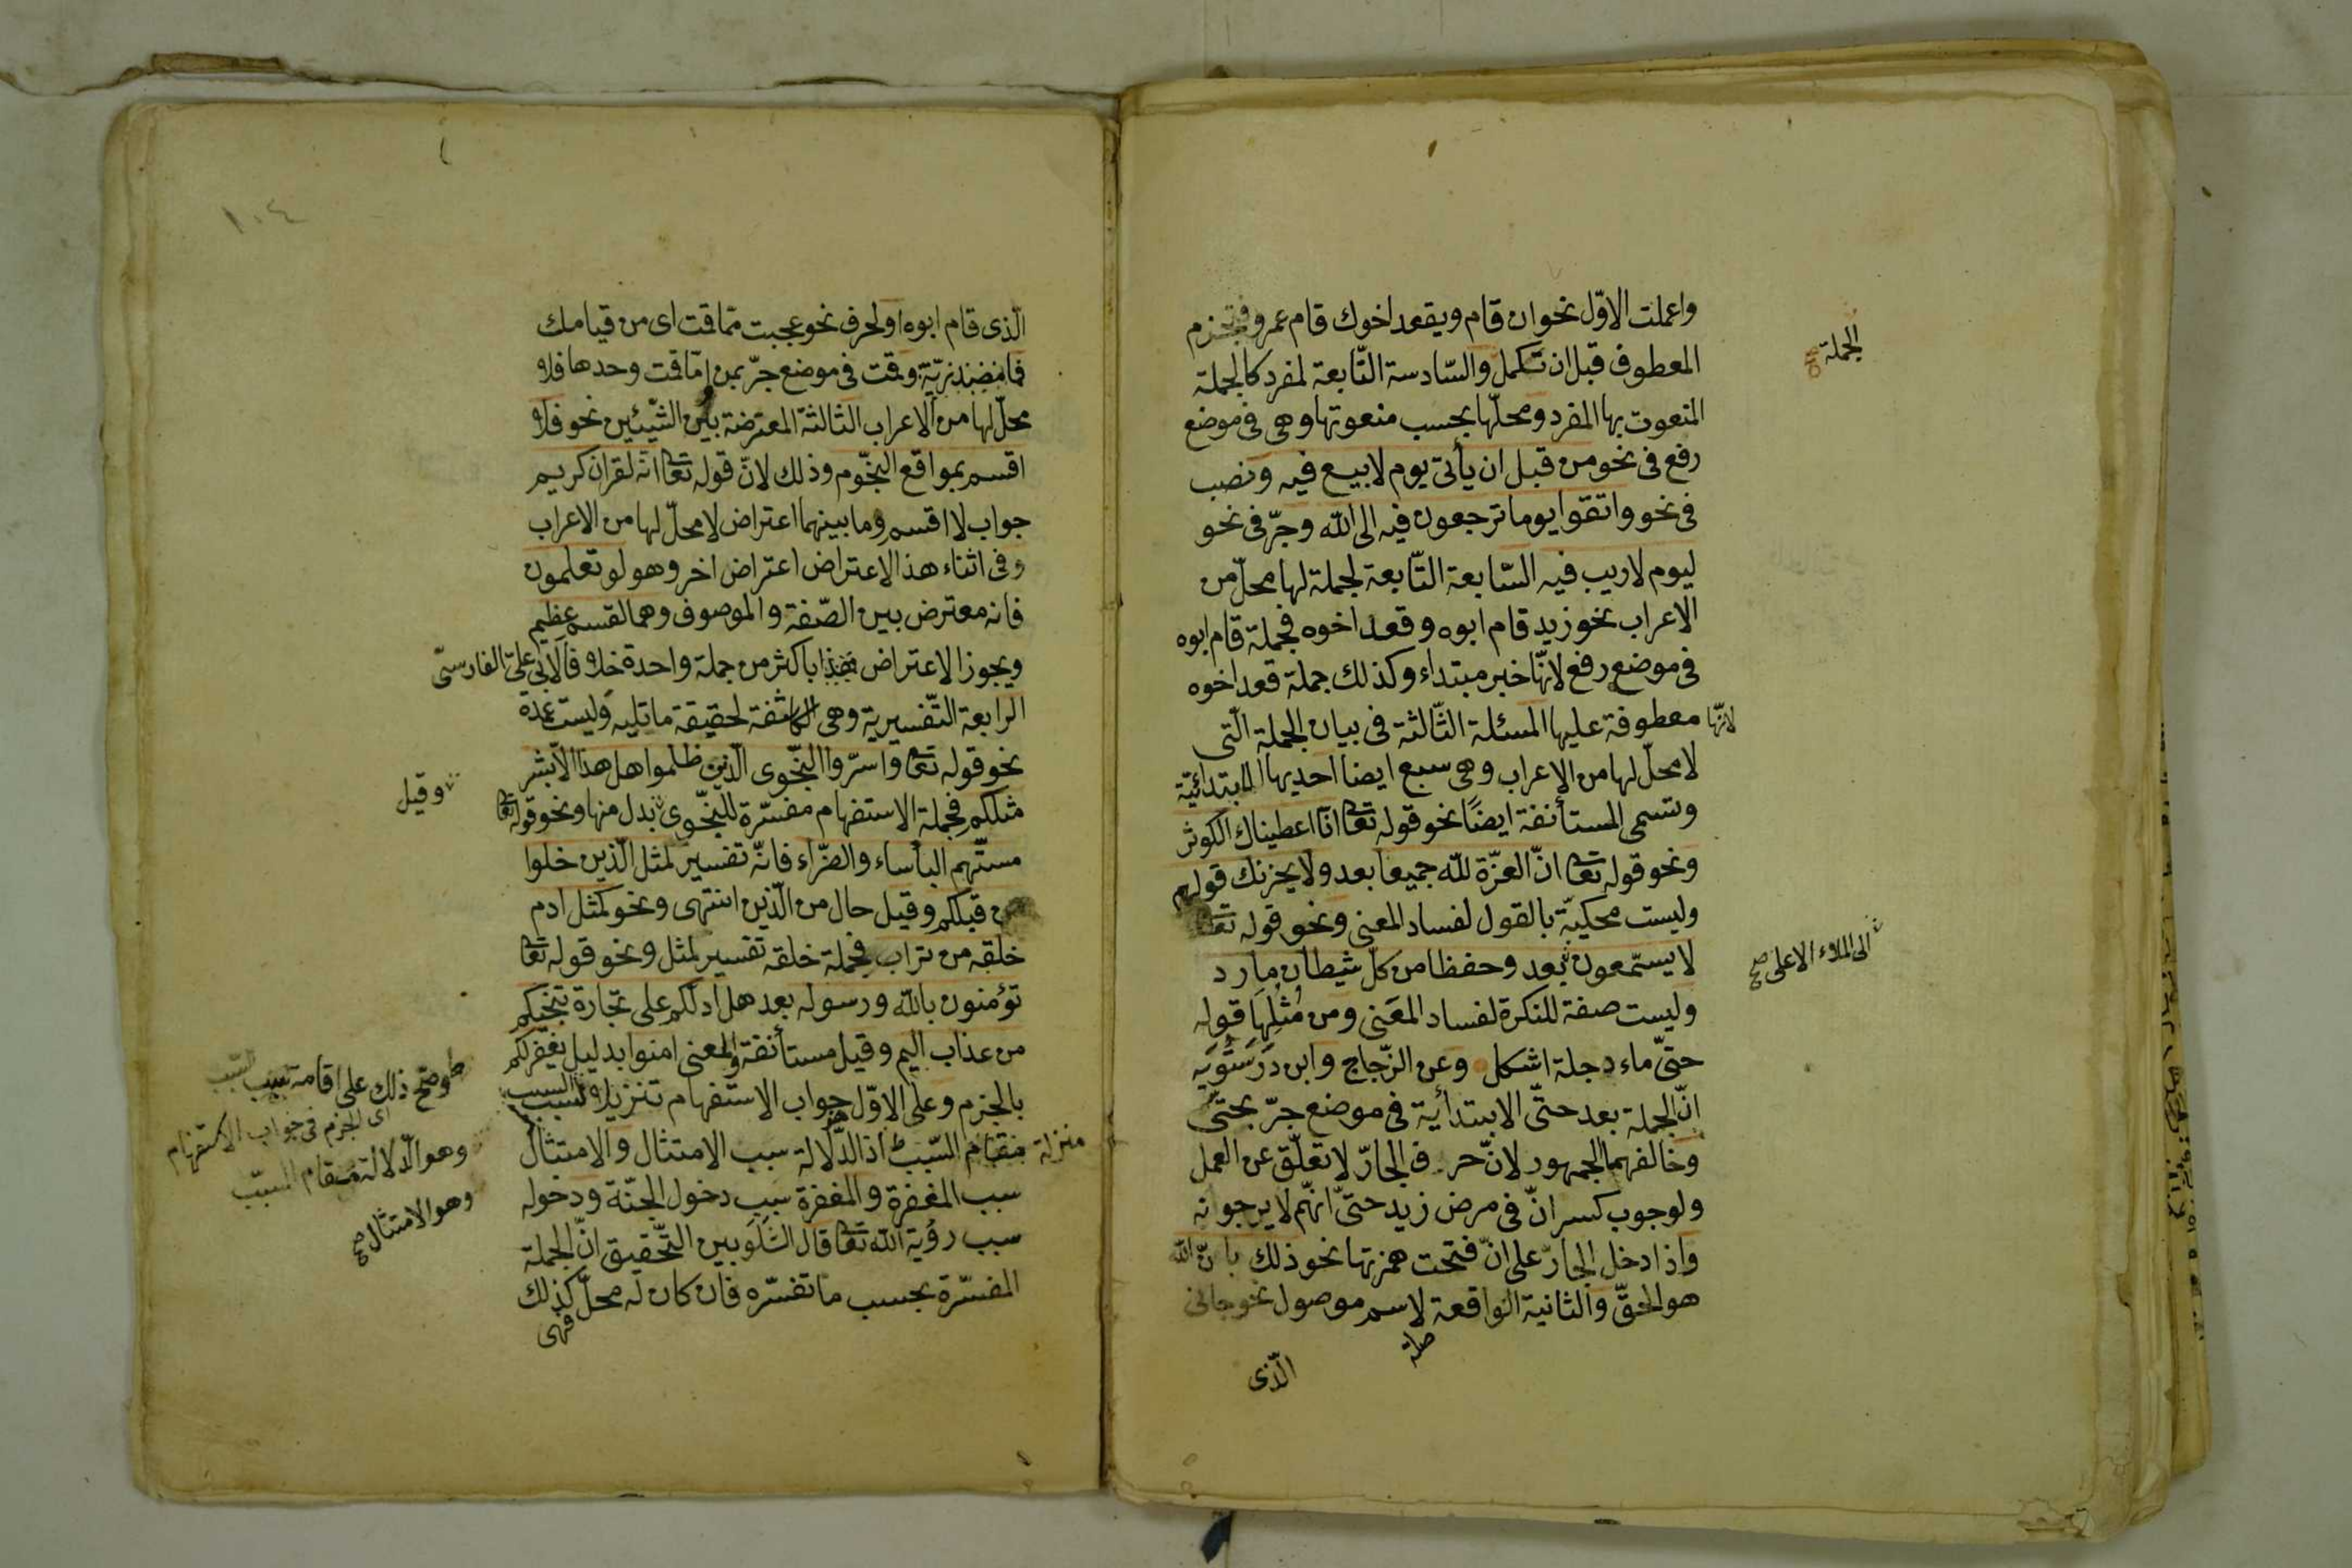 واعملت الاوّل نحو ان قام ويقعد اخوك قام عمرو فتجزم
المعطوف قبل ان تكمل والسّادسة التّابعة لمفرد كالجملة
الجملة
المنعوت بها المفرد ومحلّها بحسب منعوتها وهى فى موضع
رفع فى نحو من قبل ان يأتى يوم لا بيع فيه ونصب
فى نحو واتقوا يوما ترجعون فيه الى الله وجرّ فى نحو
ليوم لا ريب فيه السّابعة التّابعة لجملة لها محلّ من
الاعراب نحو زيد قام ابوه وقعد اخوه فجملة قام ابوه
فى موضع رفع لانّها خبر مبتداء وكذلك جملة قعد اخوه
لانّها معطوفة عليها المسئلة الثّالثة فى بيان الجملة الّتى
لا محلّ لها من الاعراب وهى سبع ايضا احديها الابتدائيّة
وتسمى المستأنفة ايضًا نحو قوله تعا انّا اعطيناك الكوثر
ونحو قوله تعا انّ العزّة لله جميعا بعد ولا يحزنك قولهم
وليست محكيّة بالقول لفساد المعنى ونحو قوله تعا
لا يسّمعون بعد وحفظا من كلّ شيطان مارد
الى الملاء الاعلى صح
وليست صفة للنكرة لفساد المعنى ومن مُثُلِهَا قوله
حتّى ماء دجلة اشكل وعن الزّجاج وابن دَرَسْتُوَيَه
انّ الجملة بعد حتّى الابتدأية فى موضع جرّ بحتّى
وخالفهما الجمهور لانّ حرف الجارّ لا تعلّق عن العمل
ولوجوب كسر انّ فى مرض زيد حتىّ انهّم لا يرجونه
واذا دخل الجارّ على انّ فتحت همزتها نحو ذلك بانّ الله
هو الحقّ والثانية الواقعة لاسم موصول نحو جائنى
صلة
الّذى
١٠٤
الّذى قام ابوه او لحرف نحو عجبت ممّا قمت اى من قيامك
فما مصدريّة وقمت فى موضع جرّ بمن امّا قمت وحدها فلا
محلّ لها من الاعراب الثالثة المعترضة بين الشّيئين نحو فلا
اقسم بمواقع النّجوم وذلك لانّ قوله تعا انّه لقران كريم
جواب لا اقسم وما بينهما اعتراض لا محلّ لها من الاعراب
وفى اثناء هذا الاعتراض اعتراض اخر وهو لو تعلمون
فانه معترض بين الصّفة والموصوف وهما القسم عظيم
ويجوز الاعتراض باكثر من جملة واحدة خلافا لابى علىّ الفارسىّ
الرابعة التّفسيرية وهى الكاشفة لحقيقة ما تليه وليست عمدة
نحو قوله تعا واسرّوا النّجوى الّذين ظلموا هل هذا الّا بشر
مثلكم فجملة الاستفهام مفسّرة للنّجوى بدل منها ونحو قوله تعا
وقيل
مسّتهم البأساء والضرّاء فانّه تفسير لمثل الّذين خلوا
من قبلكم وقيل حال من الّذين انتهى ونحو كمثل ادم
خلقه من تراب فجملة خلقه تفسير لمثل ونحو قوله تعا
تؤمنون بالله ورسوله بعد هل ادلّكم على تجارة تنجيكم
من عذاب اليم وقيل مستأنفة والمعنى امنوا بدليل يغفر لكم
بالجزم وعلى الاوّل جواب الاستفهام تنزيلا لسبب السبب
منزلة السّبب اذ الدّلالة سبب الامتثال والامتثال
سبب المغفرة والمغفرة سبب دخول الجنّة ودخوله
سبب رؤية الله تعا قال الشَلَوبين التّحقيق انّ الجملة
المفسّرة بحسب ما تفسّره فان كان له محلّ كذلك
فهى
وصحّ ذلك على اقامة سبب السّبب
اى الجزم فى جواب الاستفهام
وهو الدّلالة مقام المسبّب
وهو الامتثال صح